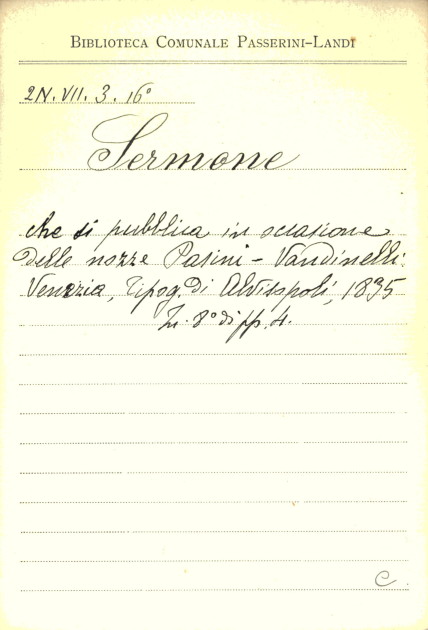 BIBLIOTECA COMUNALE PASSERINI-LANDI
2N. VII. 3. 16°
Sermone
che si pubblica in occasione
delle nozze Pasini - Vandinelli.
Venezia, Tipog. di Alvisopoli, 1835
In 8° di pp. 4.
C